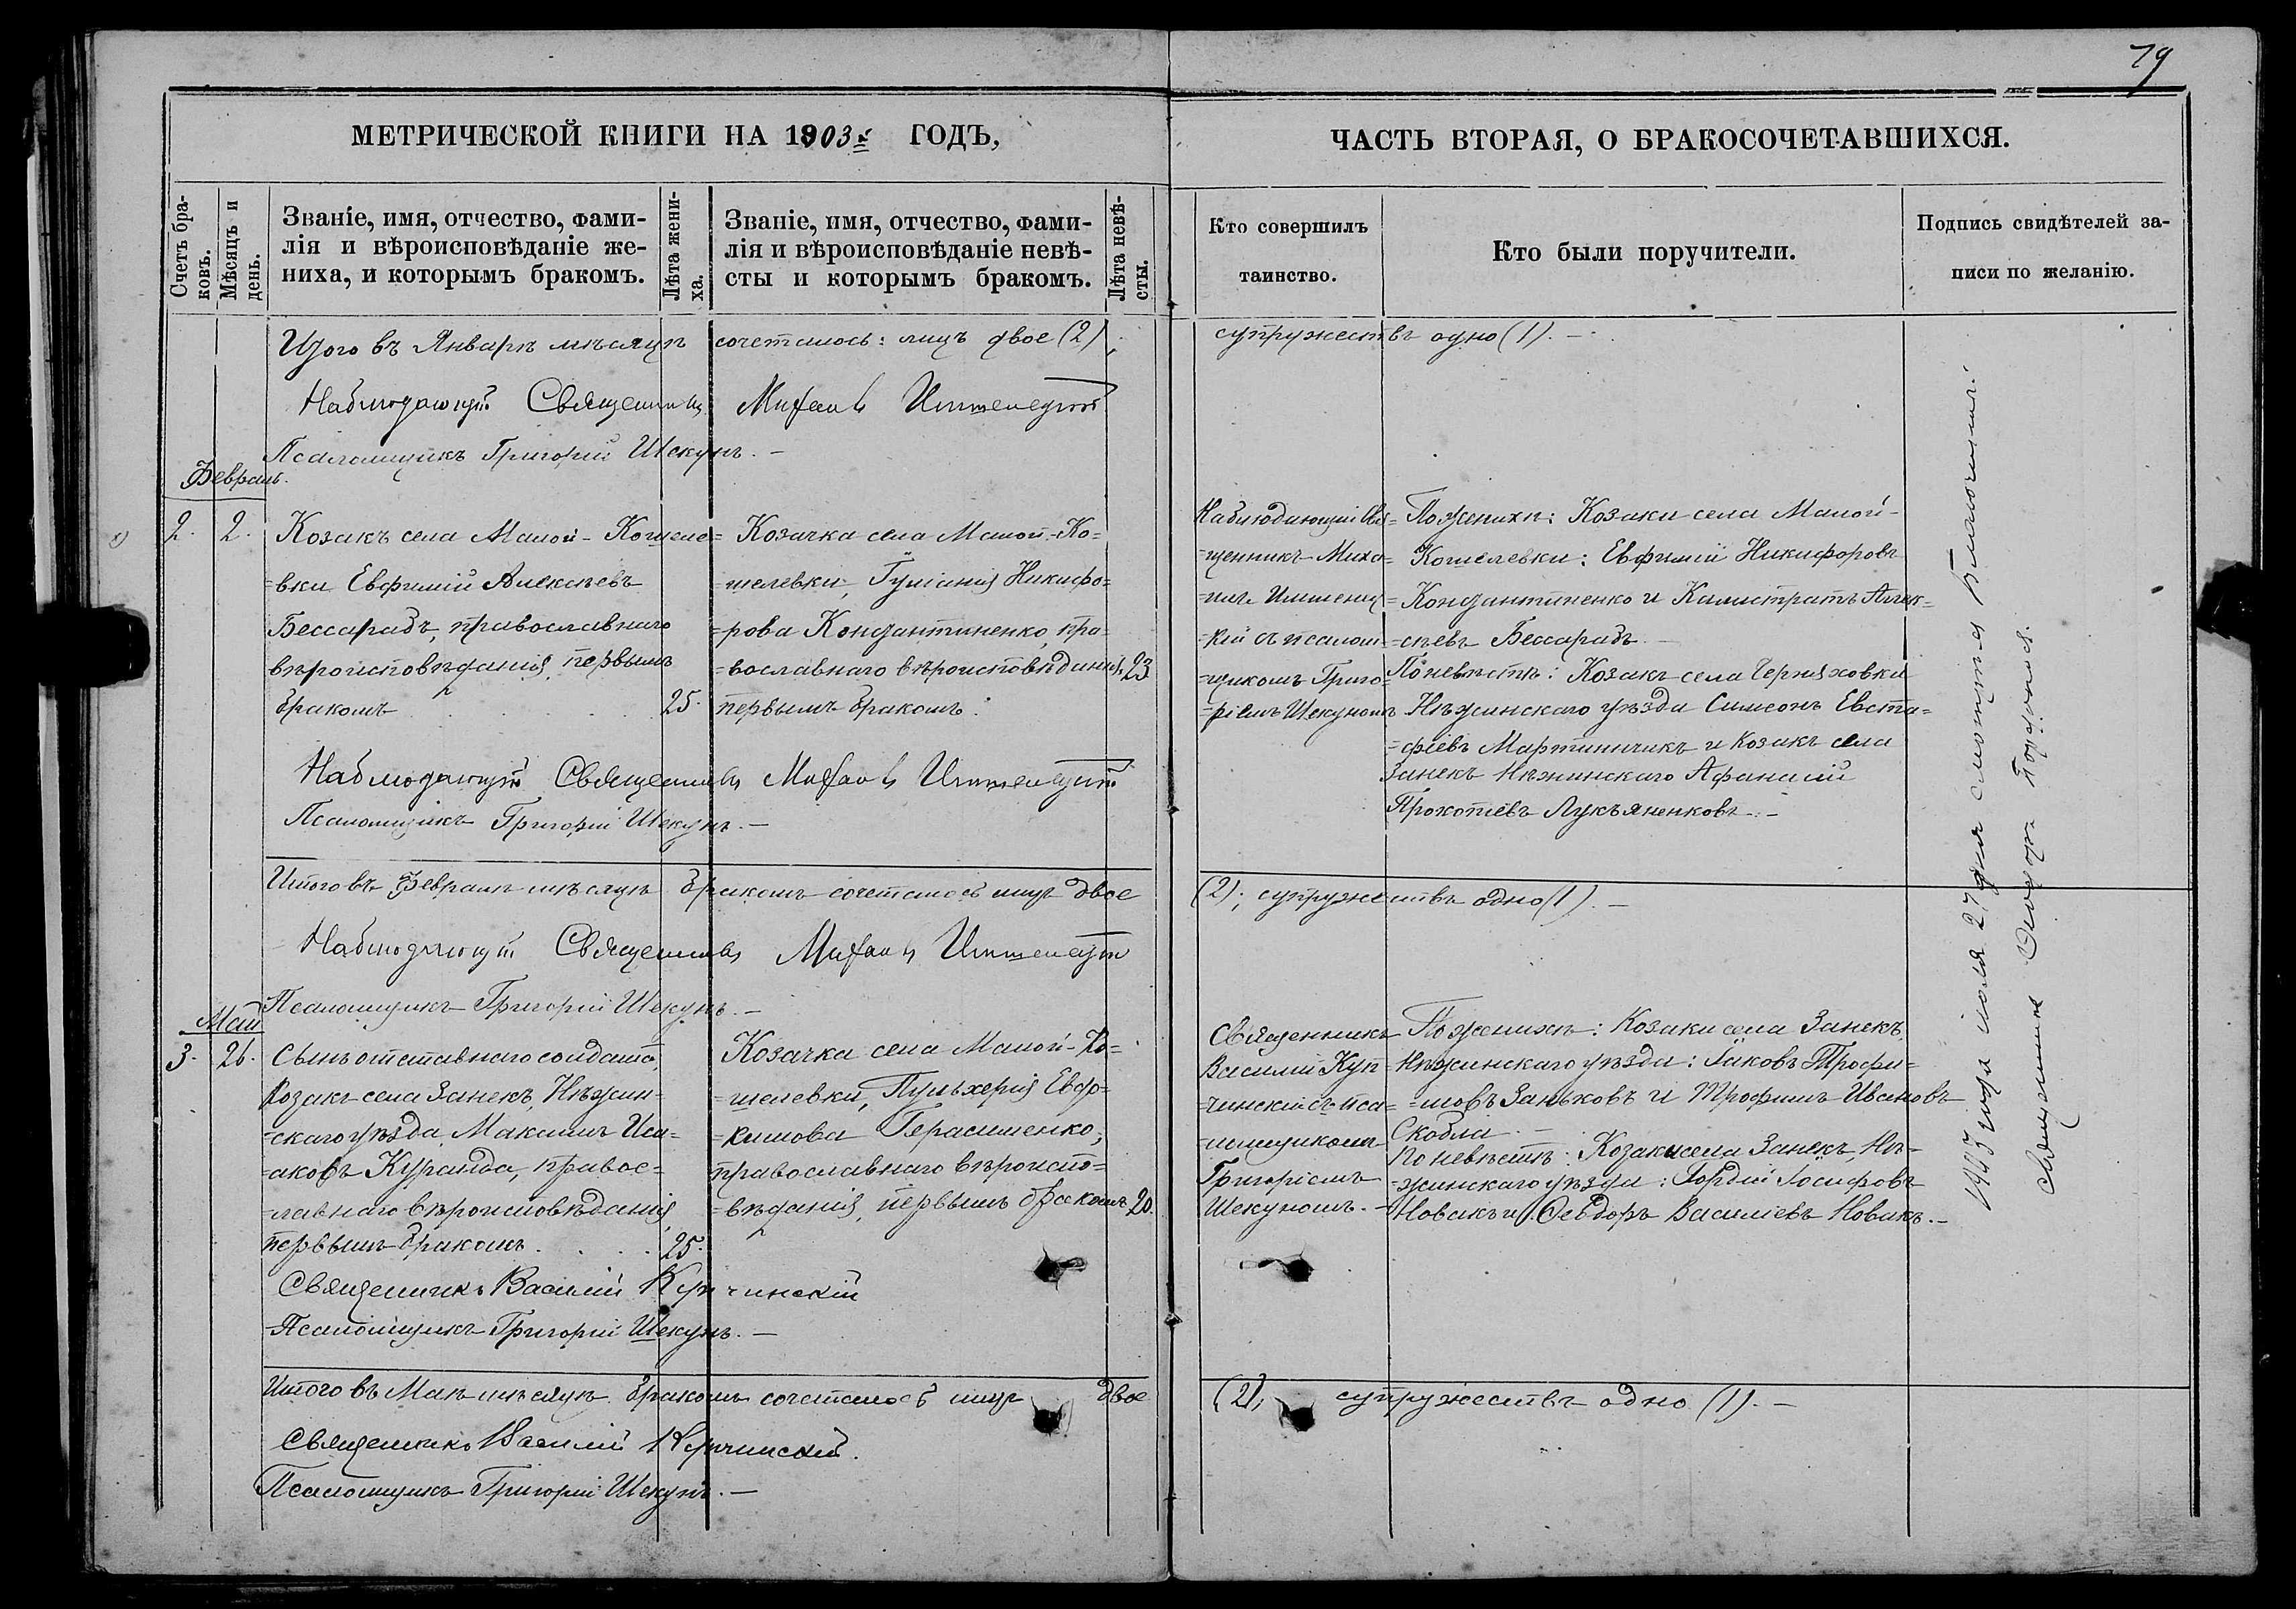 79
МЕТРИЧЕСКОЙ КНИГИ НА 1903й ГОДЪ,
ЧАСТЬ ВТОРАЯ, О БРАКОСОЧЕТАВШИХСЯ.
Счетъ бра-
ковъ.
Мѣсяцъ и
день.
Званіе, имя, отчество, фами-
лія и вѣроисповѣданіе же-
ниха, и которымъ бракомъ.
Лѣта жени-
ха.
Званіе, имя, отчество, фами-
лія и вѣроисповѣданіе невѣ-
сты и которымъ бракомъ.
Лѣта невѣ-
сты.
Кто совершилъ
таинство.
Кто были поручители.
Подпись свидѣтелей за-
писи по желанію.
Итого въ Январѣ мѣсяцѣ сочеталось: лицъ двое (2); супружествъ одно (1). –
Наблюдающій Священникъ Михаилъ
Псаломщикъ Григорій Шекунъ. –
Февраль.
2. 2.
Козакъ села Малой-Кошеле=
=вки Евфимій Алексѣевъ
Бессарабъ, православнаго
вѣроисповѣданія, первымъ
бракомъ 25.
Козачка села Малой-Ко=
=шелевки, Гуліанія Никифо=
=рова Кондантиненко, пра=
=вославнаго вѣроисповѣданія, 23
первымъ бракомъ.
Наблюдающій Свя=
=щенникъ Миха=
=кій съ псалом=
=щикомъ Григо=
=ріемъ Шекуномъ
По женихѣ: Козаки села Малой-
Кошелевки: Евфимій Никифоровъ
Кондантиненко и Калистратъ Алек=
=сѣевъ Бессарабъ. –
По невѣстѣ: Козакъ села Черняховки
Нѣжинскаго уѣзда Симеонъ Евста=
=фіевъ Мартинчикъ и Козакъ села
Занекъ Нѣжинскаго Афанасій
Прокопіевъ Лукъяненковъ. –
Наблюдающій Священникъ Михаилъ
Псаломщикъ Григорій Шекунъ. –
Итого въ Февралѣ мѣсяцѣ бракомъ сочеталось лицъ двое (2); супружествъ одно (1). –
Наблюдающій Священникъ Михаилъ
Псаломщикъ Григорій Шекунъ. –
Май
3. 26.
Сынъ отставнаго солдата,
Козакъ села Занекъ, Нѣжин=
=скаго уѣзда, Максимъ Иса=
=аковъ Куранда, правос=
=лавнаго вѣроисповѣданія,
первымъ бракомъ. 25.
Козачка села Малой-Ко=
=шелевки, Пульхерія Евфо=
=кимова Герасименко,
православнаго вѣроиспо=
=вѣданія, первымъ бракомъ 20.
Священникъ
Василій Куп=
=чинскій съ пса=
=ломщикомъ
Григоріемъ
Шекуномъ. –
По женихѣ: Козаки села Занекъ,
Нѣжинскаго уѣзда: Іаковъ Трофи=
=мовъ Заньковъ и Трофимъ Ивановъ
Скобла. –
По невѣстѣ: Козаки села Занекъ, Нѣ=
=жинскаго уѣзда: Гордій Іосифовъ
Новакъ и Феодоръ Василіевъ Новакъ. –
Священникъ Василій Купчинскій
Псаломщикъ Григорій Шекунъ. –
Итого въ Маѣ мѣсяцѣ бракомъ сочеталось лицъ двое (2), супружествъ одно (1). –
Священникъ Василій Купчинскій.
Псаломщикъ Григорій Шекунъ. –
года іюля 27 дня смотрѣлъ Благочинный
Священникъ